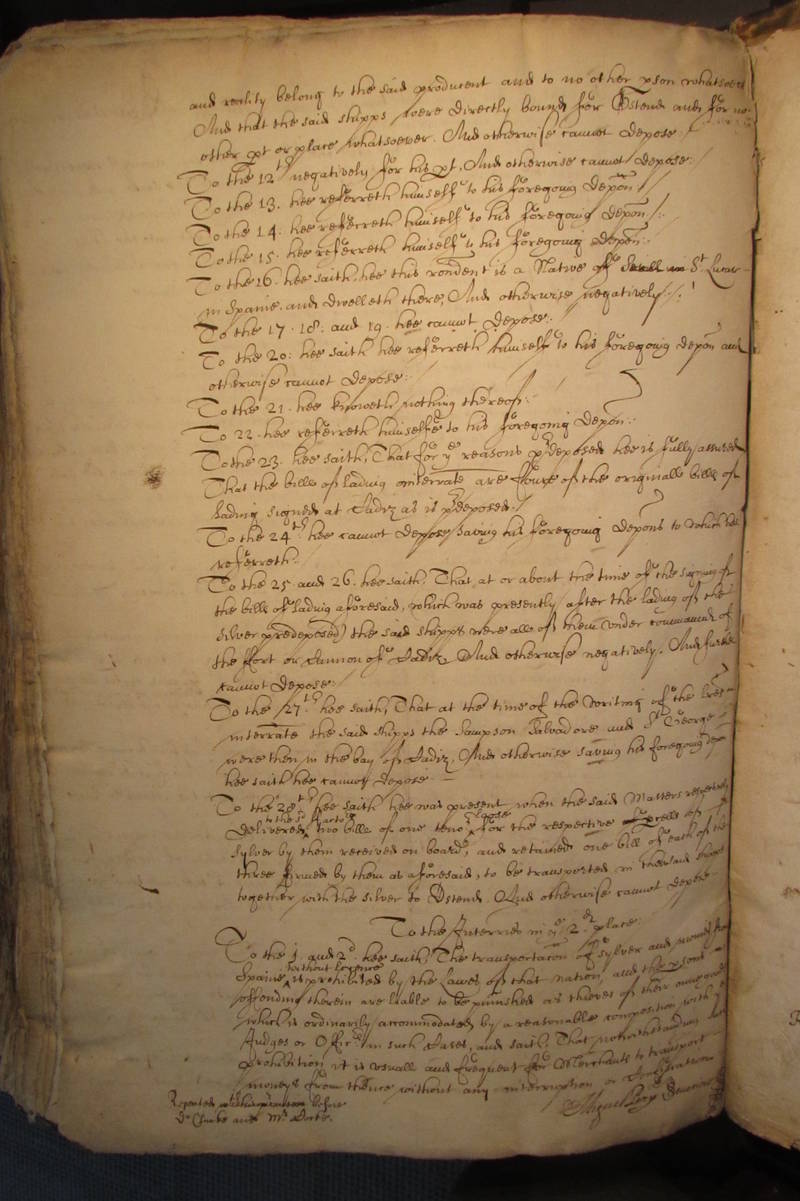 and reality belong to the said producent and to no other pson whatsoever
And that the said shipps were directly bound for Ostend and for no
other pt or place whatsoever. And otherwise cannot depose./
To the 12th negatively for his pt, And otherwise cannot depose:/
To the 13. hee referreth himself to his foregoing depon //
To the 14. hee referreth himself to his foregoing depon /:
To the 15. hee referreth himself to his foregoing depon:/
To the 16. hee saith, hee this rondent is a Native of St Lucar
in Spaine, and dwelleth there, And otherwise negatively /:/
To the 17. 18. and 19. hee cannot depose:
To the 20: hee saith hee referreth himself to his foregoing depon and
otherwise cannot depose:
To the 21. hee knoweth nothing thereof:/
To 22. hee referreth himselfe to his foregoing depon:/
To the 23. hee saith, That for ye reasons pdeposed hee is fully assured
That the bills of lading interrate are of the originall bills of
lading signed at Cadiz as is pdeposed./
To the 24th hee cannot depose saving his foregoing depons to which hee
referreth:
To the 25 and 26. hee saith, That at or about the time of the signing of
the bills of lading aforesaid, which was presently after the lading of the
silver predeposed) the said shipps were all of them under command of
the ffort or Cannon of Cadiz, And otherwise negatively. And further
cannot depose:
To the 27th hee saith, That at the time of the writing of the lres
interrate the said shipps the Sampson Salvadore and St George
were then in the bay of Cadiz, And otherwise saving his foregoing depon
hee saith hee cannot depose
To the 28th hee saith hee was present when the said Masters respectively
delivered to the sd two bills of one teno for the respective pcells of
sylver by them received on board, and retained one bill of each of the
three firmed by them as aforesaid, to be transported in the said shipps
together with the silver to Ostend. And otherwise cannot depose
To the Interries in ye 2d place:
To the 1 and 2d. hee saith, The transportacon of sylver and moneys from
Spaine without lycence is prohibited by the lawes of that nation, and the psons
offending therein are liable to be punished as thieves of their owne goods
which is ordinarily accommodated by a reasonable composition with ye
Judges or Officrs in such cases, and saith, That notwithstanding
prohibition it is usuall and frequent for Merchants to transport
moneys from thence without any interruption or
Repeated before
Dr Clarke and Mr
Miguel